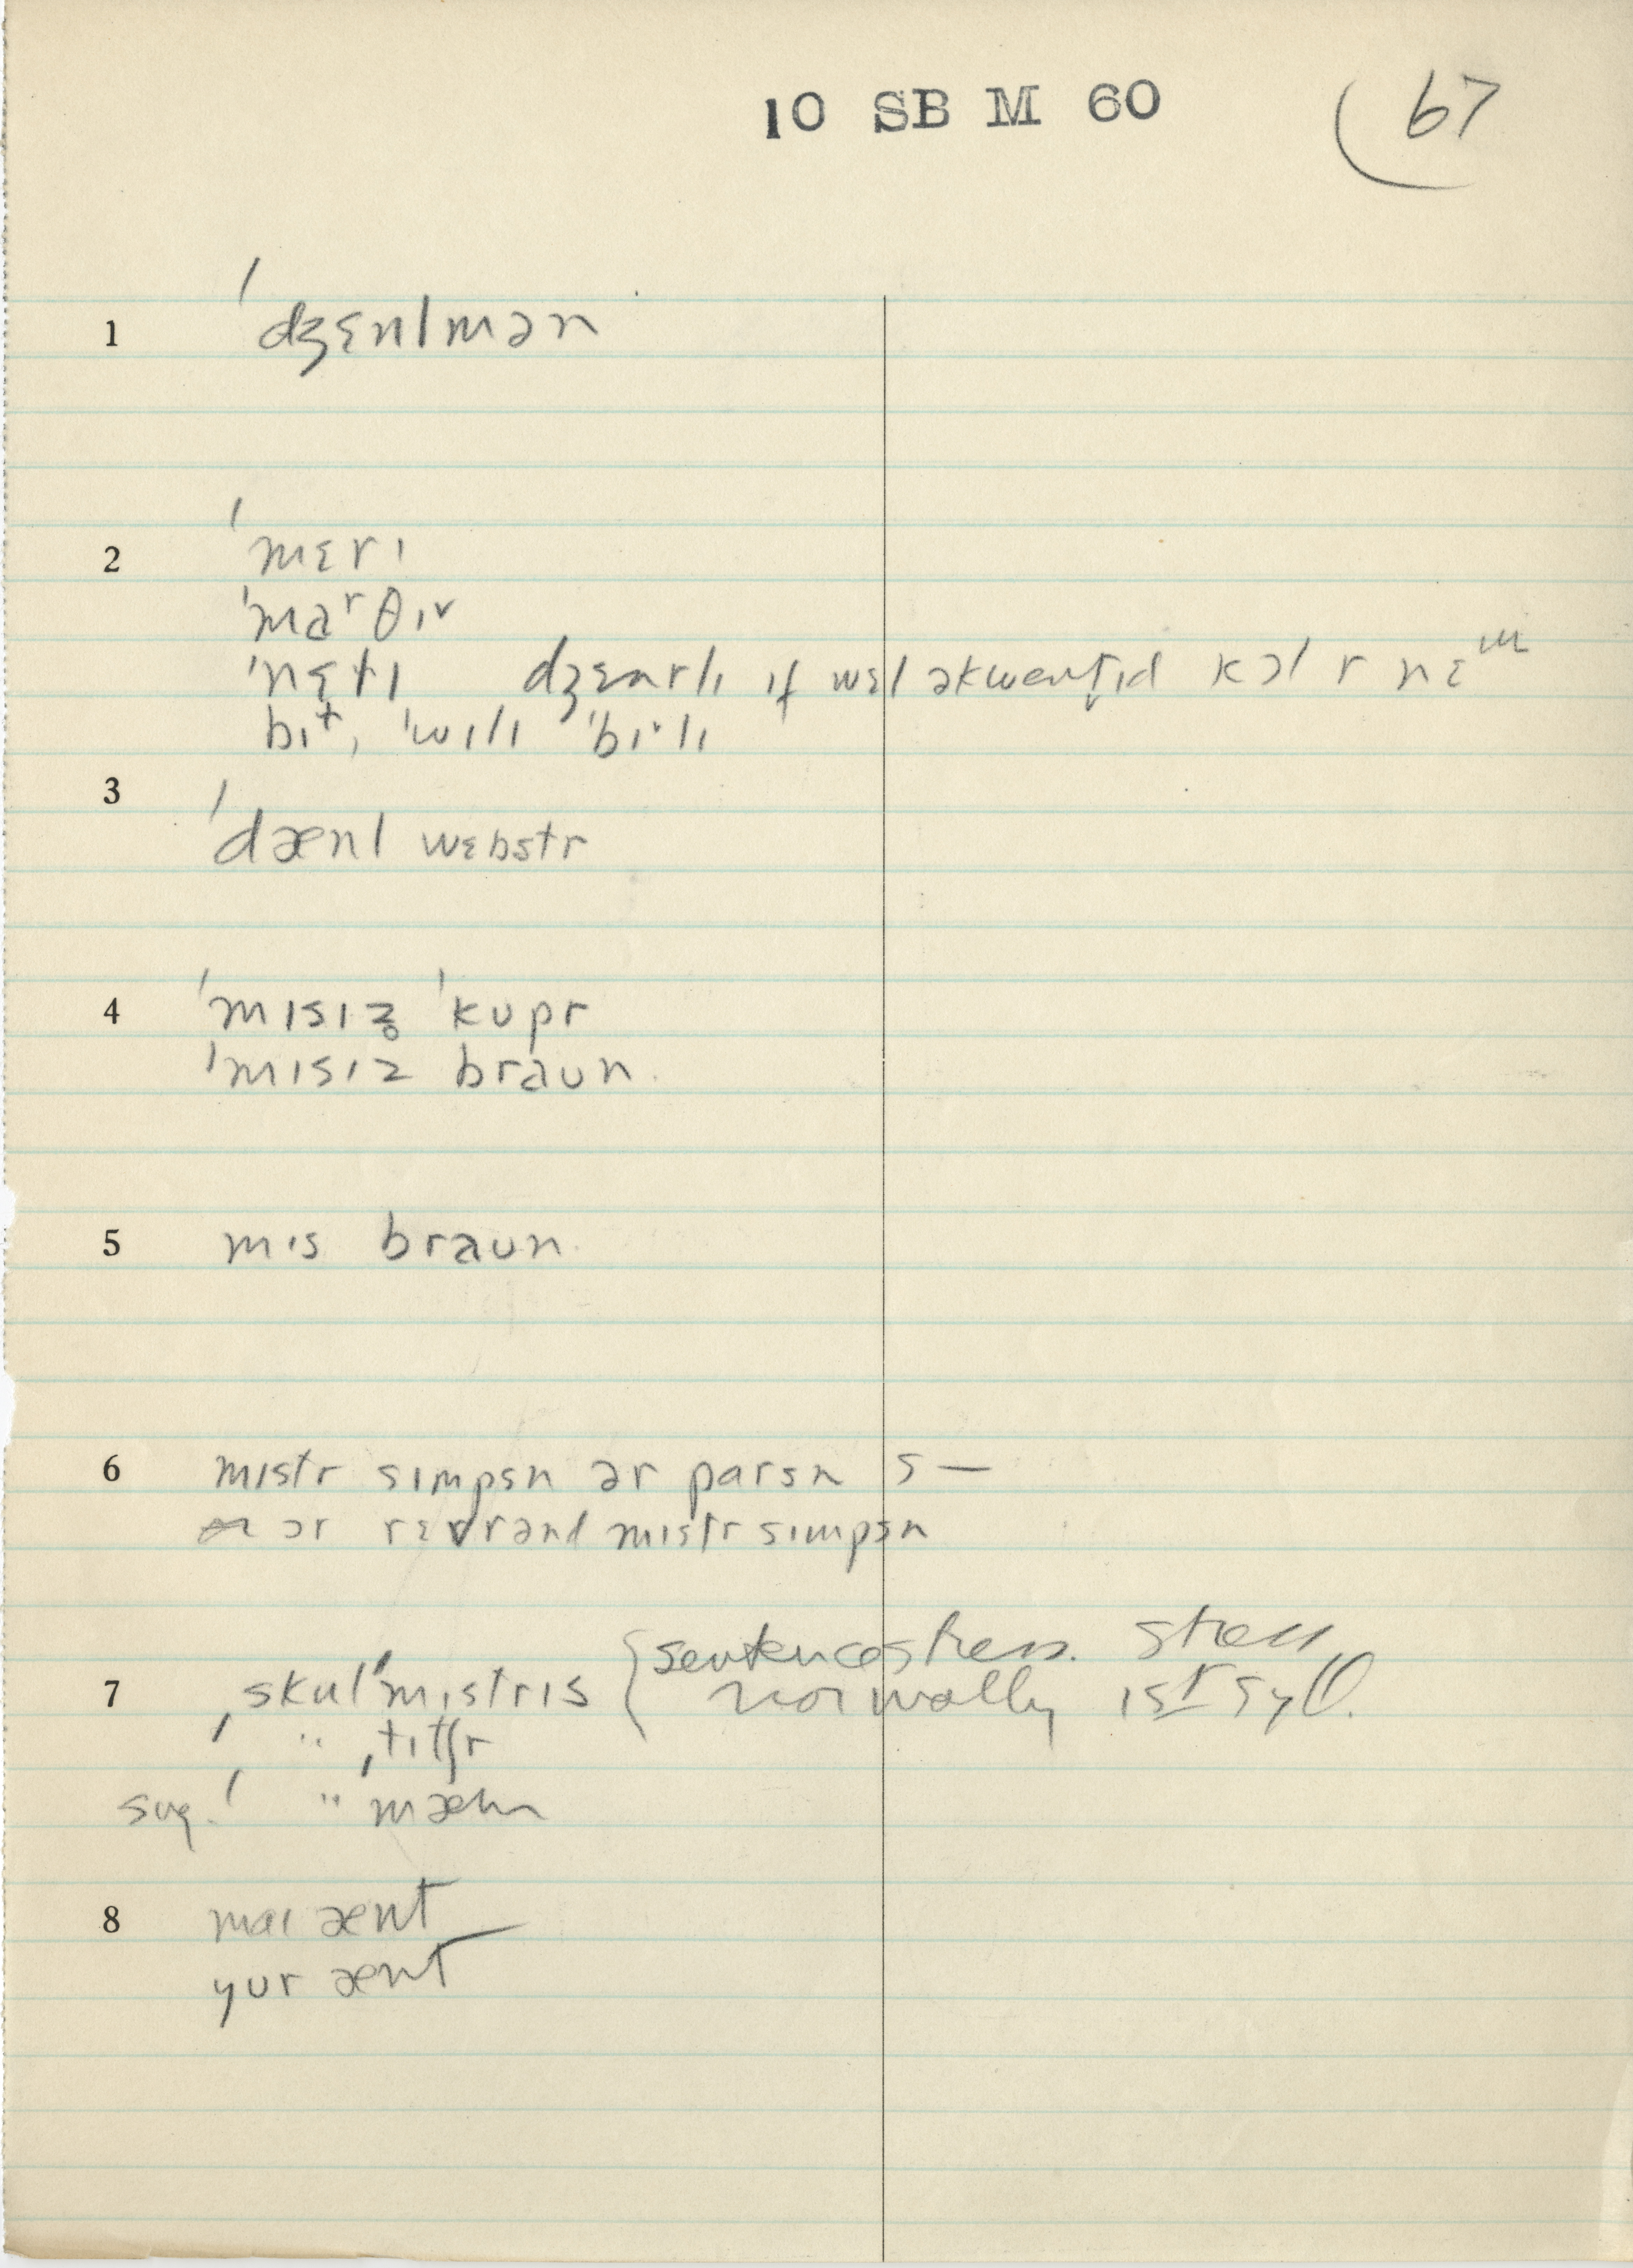 10 SB M 60 67
1 ˈdʒɛnlmən
2 ˈmɛrɪ
ˈmaʳθɪ
ˈnɛtɪ dʒɛnrlɪ if wɛl əkwentɪd kɔl r nɛᵐ
bɪt, ˈwɪlɪ ˈbɪlɪ
3 ˈdænl wɛbstr
4 ˈmɪsɪz̥ ˈkupr
ˈmɪsɪz braun
5 mɪs braun
6 mɪstr sɪmpsn ər parsn s—
ɔr rɛvrənd mɪstr sɪmpsn
7 ˌskulˈmɪstrɪs { sentence stress. stress
normally 1st syll.
ˈ " ˌtitʃr
sug. ˈ " mæn
8 maɪ ænt
yur ænt